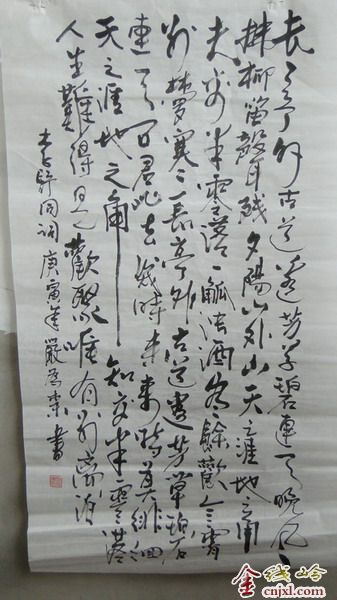 长亭外古道邊芳草碧連天晚风
拂柳笛聲残夕陽山外山天之涯地之角
知交半零落一觚浊酒尽餘歡今宵
别梦寒長亭外古道邊芳草碧
連天问君此去幾時来来時莫徘徊
天之涯地之角知交半零落
人生難得是歡聚唯有别離多
李叔同词庚寅年嚴為書
金线岭
cnjxl.com